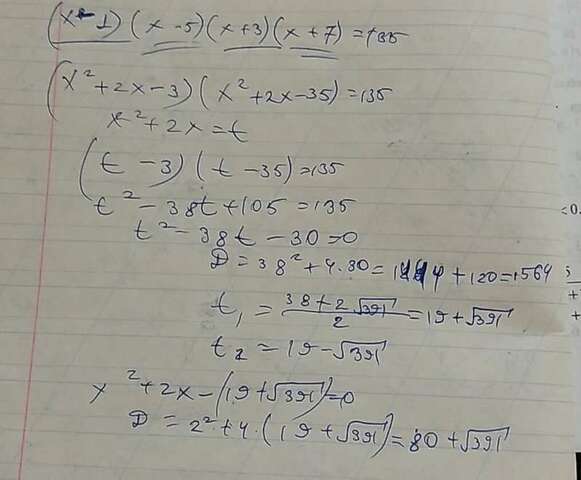 (x-1)(x-5)(x+3)(x+7)=135
(x²+2x-3)(x²+2x-35)=135
x²+2x=t
(t-3)(t-35)=135
t²-38t+105=135
t²-38t-30=0
D=38²+4·30=1444+120=1564
t₁=(38+2√391)/2=19+√391
t₂=19-√391
x²+2x-(19+√391)=0
D=2²+4·(19+√391)=80+√391